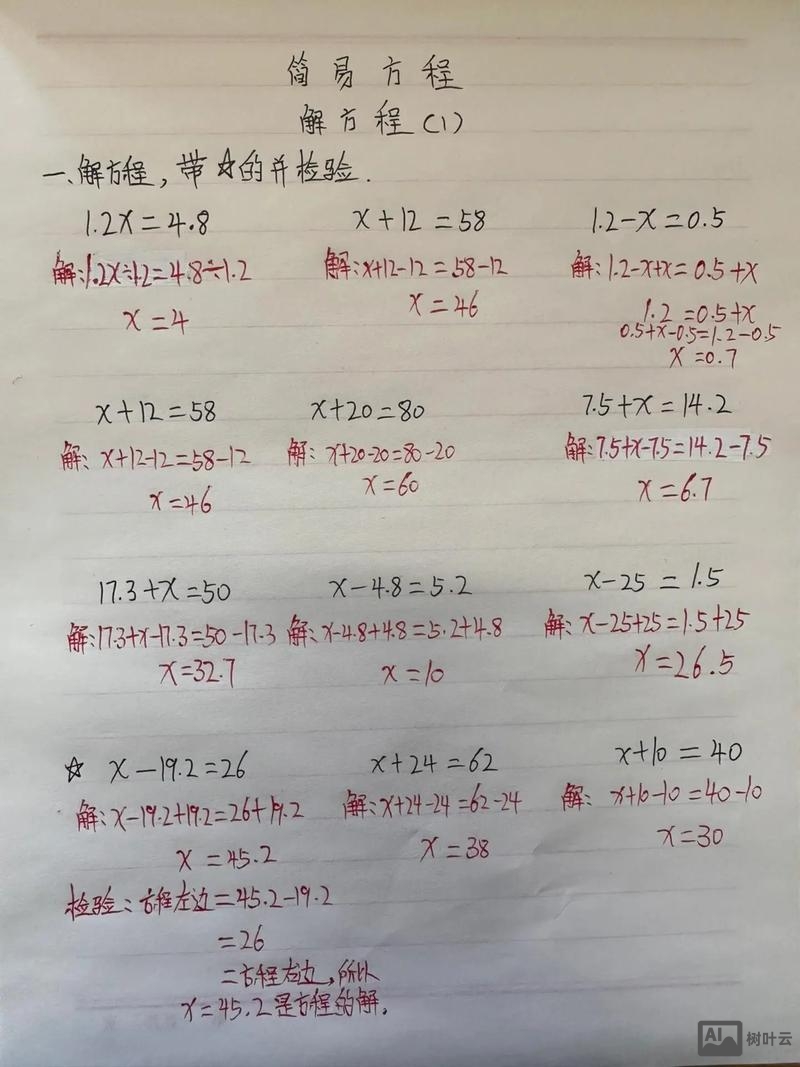 简易方程
解方程(1)
一、解方程,带☆的并检验.
1.2x=4.8
x+12=58
1.2-x=0.5
解:1.2x÷1.2=4.8÷1.2
解:x+12-12=58-12
解:1.2-x+x=0.5+x
x=4
x=46
1.2=0.5+x
0.5+x-0.5=1.2-0.5
x=0.7
x+12=58
x+20=80
7.5+x=14.2
解:x+12-12=58-12
解:x+20-20=80-20
解:7.5+x-7.5=14.2-7.5
x=46
x=60
x=6.7
17.3+x=50
x-4.8=5.2
x-25=1.5
解:17.3+x-17.3=50-17.3
解:x-4.8+4.8=5.2+4.8
解:x-25+25=1.5+25
x=32.7
x=10
x=26.5
☆ x-19.2=26
x+24=62
x+10=40
解:x-19.2+19.2=26+19.2
解:x+24-24=62-24
解:x+10-10=40-10
x=45.2
x=38
x=30
检验:方程左边=45.2-19.2
=26
=方程右边,所以
x=45.2是方程的解.
AI 树叶云